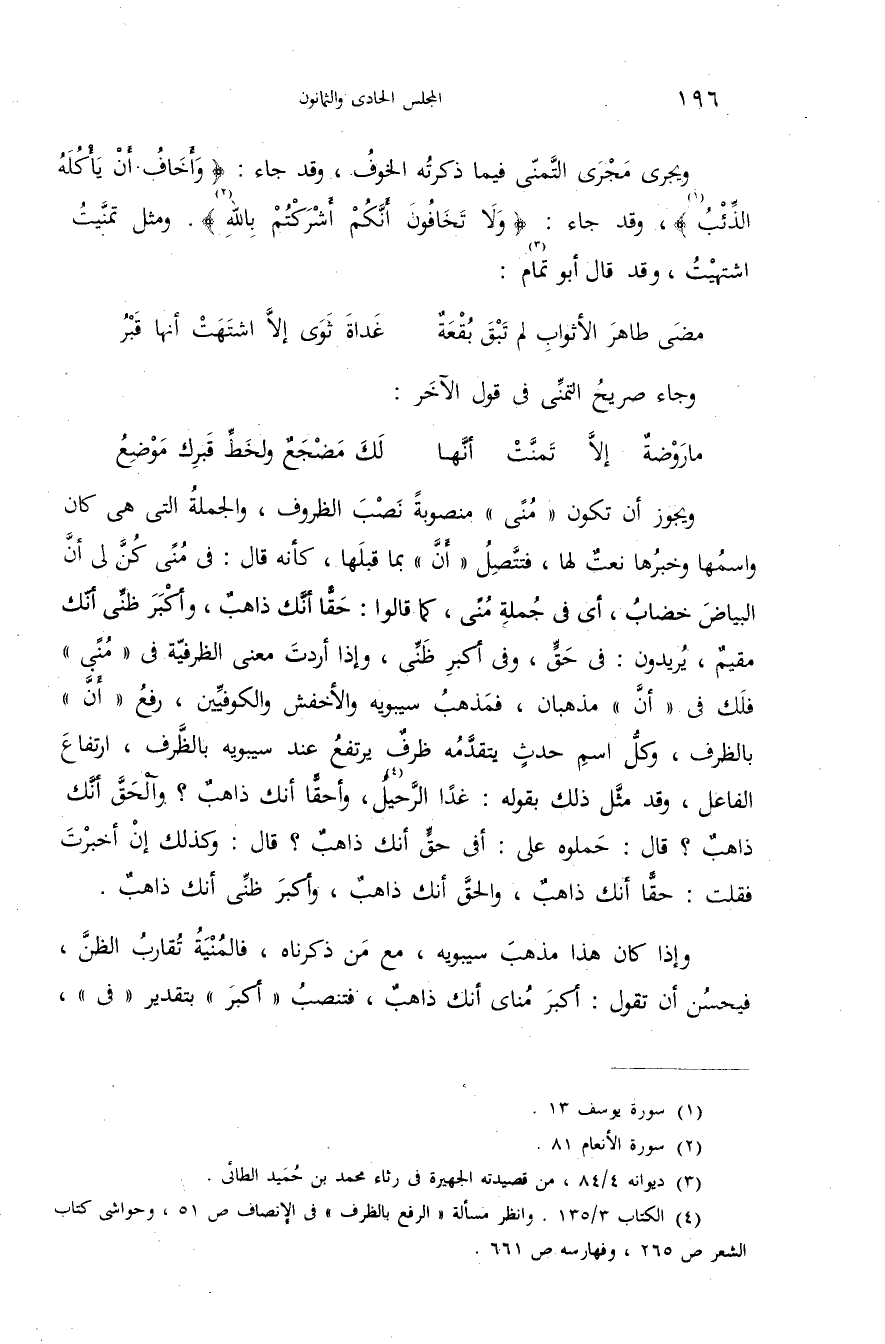 ١٩٦ المجلس الحادى والثانون
ويجرى مَجْرَى التَّمنّى فيما ذكرتُه الخوفُ ، وقد جاء : ﴿ وَأَخَافُ أَنْ يَأْكُلَهُ
الذِّئْبُ ﴾(١) ، وقد جاء : ﴿ وَلَا تَخَافُونَ أَنَّكُمْ أَشْرَكْتُمْ بِاللهِ ﴾(٢) . ومثل تمنَّيتُ
اشتهيْتُ ، وقد قال أبو تمام(٣) :
مضَى طاهرَ الأثوابِ لم تَبْقَ بُقْعَةٌ غَداةَ ثَوَى إلاَّ اشتَهَتْ أنها قَبْرُ
وجاء صريحُ التمنِّى فى قول الآخَر :
مارَوْضةٌ إلاَّ تَمنَّتْ أنَّها لَكَ مَضْجَعٌ ولخَطِّ قَبرِك مَوْضِعُ
ويجوز أن تكون « مُنًى » منصوبةً نَصْبَ الظروف ، والجملةُ التى هى كان
واسمُها وخبرُها نعتٌ لها ، فتتَّصِلُ « أَنَّ » بما قبلَها ، كأنه قال : فى مُنًى كُنَّ لى أنَّ
البياضَ خضابُ ، أى فى جُملةِ مُنًى ، كما قالوا : حَقًّا أنَّك ذاهبٌ ، وأكْبَرَ ظنِّى أنّك
مقيمٌ ، يُريدون : فى حَقٍّ ، وفى أكبرِ ظَنِّى ، وإذا أردتَ معنى الظرفيّة فى « مُنًى »
فلَك فى « أنَّ » مذهبان ، فمَذهبُ سيبويه والأخفش والكوفيِّين ، رفعُ « أَنَّ »
بالظرف ، وكلُّ اسمِ حدثٍ يتقدَّمُه ظرفٌ يرتفعُ عند سيبويه بالظَّرف ، ارتفاعَ
الفاعل ، وقد مثَّل ذلك بقوله : غدًا الرَّحيلُ(٤) ، وأحقًّا أنك ذاهبٌ ؟ وآلْحَقَّ أنَّك
ذاهبٌ ؟ قال : حَملوه على : أفى حقٍّ أنك ذاهبٌ ؟ قال : وكذلك إنْ أخبرْتَ
فقلت : حقًّا أنك ذاهبٌ ، والحقَّ أنك ذاهبٌ ، وأكبرَ ظنِّى أنك ذاهبٌ .
وإذا كان هذا مذهبَ سيبويه ، مع مَن ذكرناه ، فالمُنْيَةُ تُقاربُ الظنَّ ،
فيحسُن أن تقول : أكبرَ مُناى أنك ذاهبٌ ، فتنصبُ « أكبرَ » بتقدير « فى » ،
(١) سورة يوسف ١٣ .
(٢) سورة الأنعام ٨١ .
(٣) ديوانه ٨٤/٤ ، من قصيدته الجهيرة فى رثاء محمد بن حُمَيد الطائى .
(٤) الكتاب ١٣٥/٣ . وانظر مسألة « الرفع بالظرف » فى الإنصاف ص ٥١ ، وحواشى كتاب
الشعر ص ٢٦٥ ، وفهارسه ص ٦٦١ .